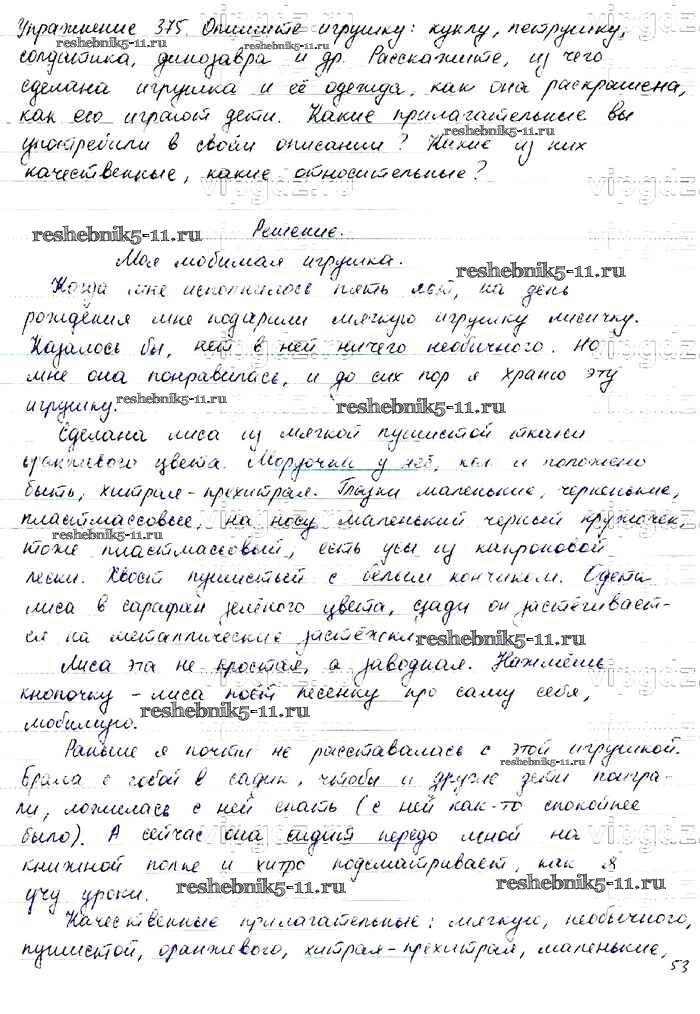 Упражнение 375. Опишите игрушку: куклу, петрушку,
солдатика, динозавра и др. Расскажите, из чего
сделана игрушка и её одежда, как она раскрашена,
как ею играют дети. Какие прилагательные вы
употребили в своём описании? Какие из них
качественные, какие относительные?
Решение.
Моя любимая игрушка.
Когда мне исполнилось пять лет, на день
рождения мне подарили мягкую игрушку лисичку.
Казалось бы, нет в ней ничего необычного. Но
мне она понравилась, и до сих пор я храню эту
игрушку.
Сделана лиса из мягкой пушистой ткани
оранжевого цвета. Мордочка у неё, как и положено
быть, хитрая-прехитрая. Глазки маленькие, черненькие,
пластмассовые, на носу маленький черный кружочек,
тоже пластмассовый, есть усы из капроновой
лески. Хвост пушистый с белым кончиком. Одета
лиса в сарафан зелёного цвета, сзади он застёгивает-
ся на металлические застёжки.
Лиса эта не простая, а заводная. Нажмёшь
кнопочку - лиса поёт песенку про саму себя,
любимую.
Раньше я почти не расставалась с этой игрушкой.
Брала с собой в садик, чтобы и другие дети поигра-
ли, ложилась с ней спать (с ней как-то спокойнее
было). А сейчас она сидит передо мной на
книжной полке и хитро подсматривает, как я
учу уроки.
Качественные прилагательные: мягкую, необычного,
пушистой, оранжевого, хитрая-прехитрая, маленькие,
53
reshebnik5-11.ru
vipgdz